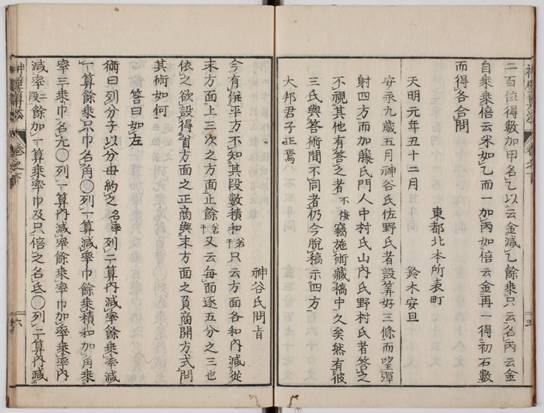 二百位得數加甲名乙以云金減乙餘乘只云名丙云金
自乘乘倍云米如乙而一加丙如倍云金再一得初石數
而得各合問
東都北本所表町
天明元年丑十二月 鈴木安旦
安永九歳五月神谷氏佐野氏者設算好三條而望彈
射四方而加藤氏門人中村氏山內氏野村氏者答之
不視其他有答之者不佞竊施術藏槗中久矣然有彼
三氏與答術間不同者仍今脫稿示四方
大邦君子正焉
神谷氏問旨
今有僞平方不知其段數積和若干只云方面各和內減從
末方面上三次之方面止餘若干又云每面逐五分之三也
依之欲設得首方面之正商與末方面之負商開方式問
其術如何
答曰如左
術曰列分子以分母約之名率列二算內減率餘乘減
一算餘乘只巾名角○列一算減率餘乘積和加角乘
率三乘巾名亢○列一算內減率餘乘率巾加率率內
減率二段餘加一算乘率巾及只倍之名氐○列二算內減